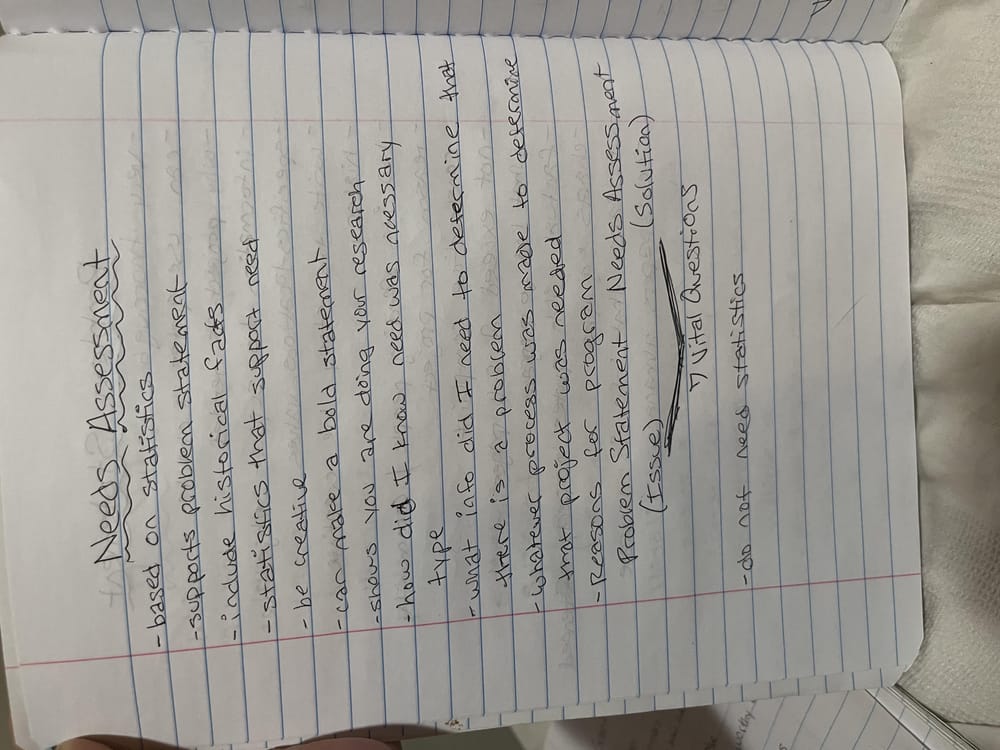 Needs Assessment
- based on statistics
- supports problem statement
- include historial facts
- statistics that support need
- be creative
- can make a bold statement
- shows you are doing your research
- how did I know need was nessary
type
- what info did I need to determine that
there is a problem
- whatever process was made to determine
that project was needed
- Reasons for program
Problem Statement Needs Assessment
(Issue) (Solution)
7 Vital Questions
- do not need statistics